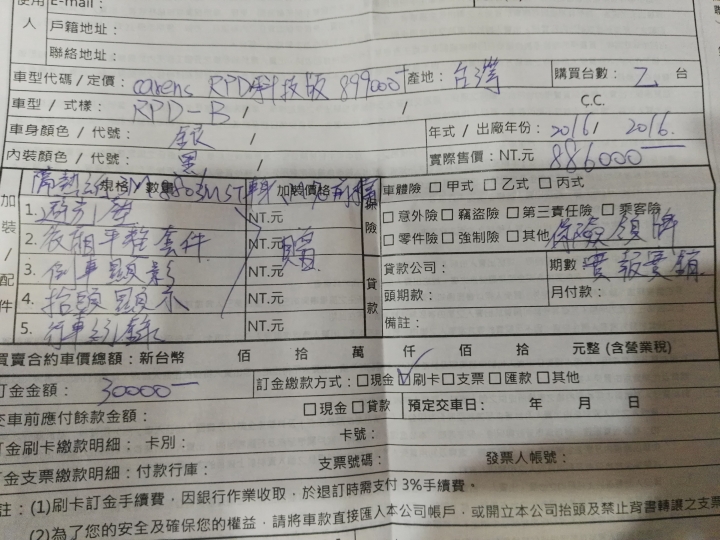 使用人
E-mail：
戶籍地址：
聯絡地址：
車型代碼 / 定價： carens RPD科技版 899000 產地： 台灣 購買台數： 乙 台
車型 / 式樣： RPD-B / / C.C.
車身顏色 / 代號： 銀 / 年式 / 出廠年份： 2016 / 2016.
內裝顏色 / 代號： 黑 / 實際售價：NT.元 886000
加裝 / 配件
隔熱紙 3M
規格 / 數量 加裝價格 保險 車體險 □ 甲式 □ 乙式 □ 丙式
1. NT.元 □ 意外險 □ 竊盜險 □ 第三責任險 □ 乘客險
2. 後廂平整套件 NT.元 贈 □ 零件險 □ 強制險 □ 其他 保險領牌
3. 倒車顯影 NT.元 貸款 貸款公司： 期數： 實報實銷
4. 抬頭顯示 NT.元 頭期款： 月付款：
5. 行車紀錄 NT.元 備註：
買賣合約車價總額：新台幣 佰 拾 萬 仟 佰 拾 元整 (含營業稅)
訂金金額： 30000 訂金繳款方式：□現金 ☑刷卡 □支票 □匯款 □其他
交車前應付餘款金額： □現金 □貸款 預定交車日： 年 月 日
訂金刷卡繳款明細： 卡別： 卡號：
訂金支票繳款明細：付款行庫： 支票號碼： 發票人帳號：
註：(1)刷卡訂金手續費，因銀行作業收取，於退訂時需支付 3%手續費。
(2)為了您的安全及確保您的權益，請將車款直接匯入本公司帳戶，或開立本公司抬頭及禁止背書轉讓之支票